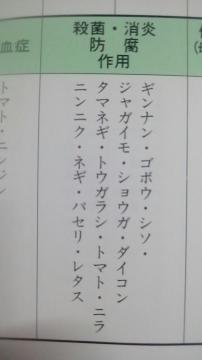 血症
殺菌・消炎
防腐
作用
ギンナン・ゴボウ・シソ・
ジャガイモ・ショウガ・ダイコン
タマネギ・トウガラシ・トマト・ニラ
ニンニク・ネギ・パセリ・レタス
トマト・ニンジン